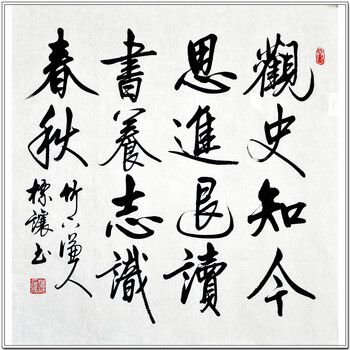 觀史知今
思進退讀
書養志識
春秋
竹下謙人
標讓书